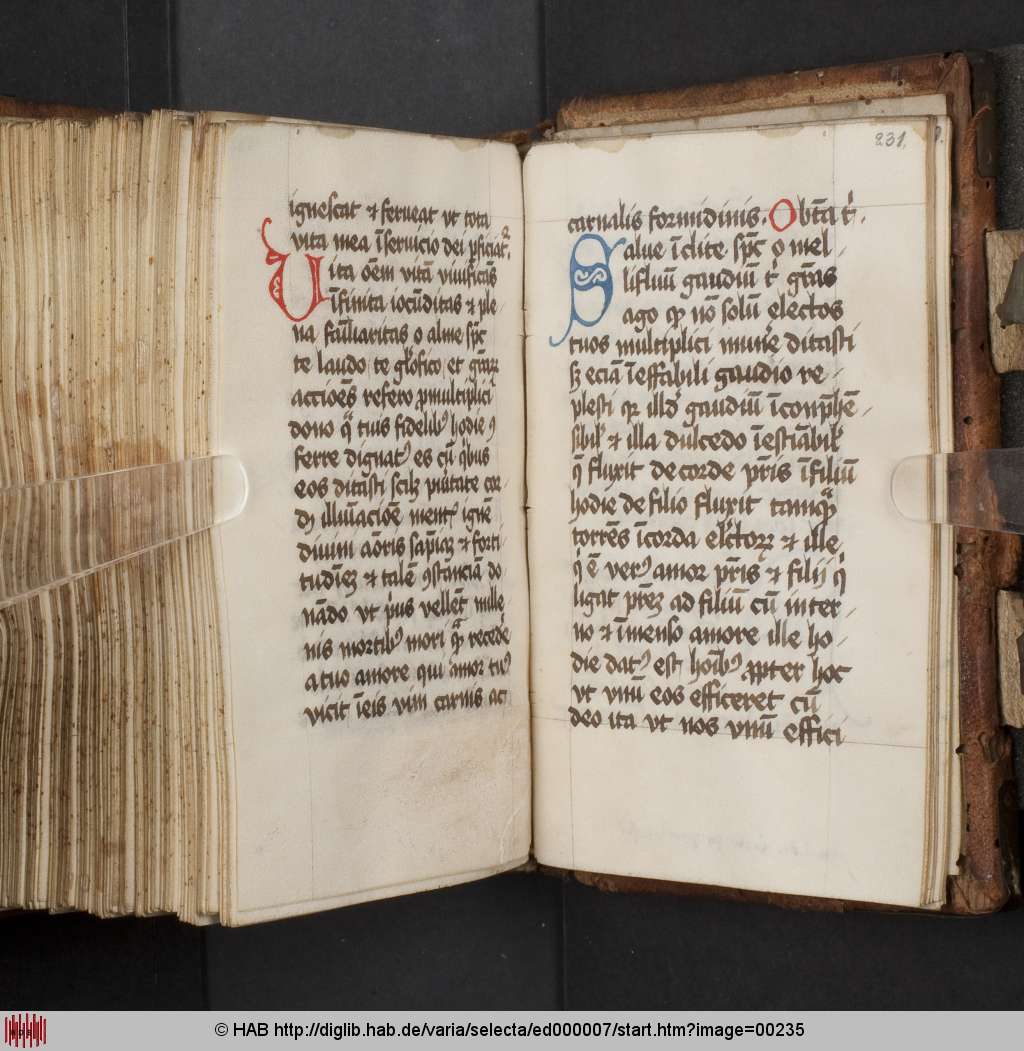 ignescat ⁊ ferueat vt tota
vita mea ī seruicio dei ꝓficiat᷑.
Uita oēm vitā viuificās
īfinita iocūditas ⁊ ple
na fāiliaritas o alme sp̄c
te laudo te gl̓ifico et gr̄aꝝ
accióes refero ꝓ multiplici
dono qͣ̄ tuis fidelibꝰ hodie ꝯ
ferre dignatꝰ es cū qͥbus
eos ditasti scilꝫ puritate cor
dꝭ illuīacióe mentꝭ igne
diuini aōris sapīe ⁊ forti
tudinē ⁊ talē ꝯstanciā do
nādo vt priꝰ vellent mille
nis mortibꝰ mori qͣ̄ recede
a tuo amore qui amor tuꝰ
vicit ī eis vim carnis ac
231.
carnalis formidinis. Obtā t᷑.
Salue īclite sp̄c o mel-
lifluū gaudiū t᷑ gr̄as
ago qꝫ nō solū electos
tuos multiplici mūe ditasti
sꝫ eciā ī effabili gaudio re-
plesti qꝛ illd̓ gaudiū ī conp̄hē-
sibil̓ ⁊ illa dulcedo ī estīabil̓
q̄ fluxit de corde pr̄is ī filiū
hodie de filio fluxit tamqͣ̄
torrēs ī corda elc̄toꝝ ⁊ ille
qͥ ē verꝰ amor pr̄is ⁊ filij qͥ
ligat pr̄eꝫ ad filiū cū inter-
no ⁊ īmenso amore ille ho-
die datꝰ est hoībꝰ ꝓpter hoc
vt vnū eos efficeret cū
deo ita vt nos vnū effici
© HAB http://diglib.hab.de/varia/selecta/ed000007/start.htm?image=00235